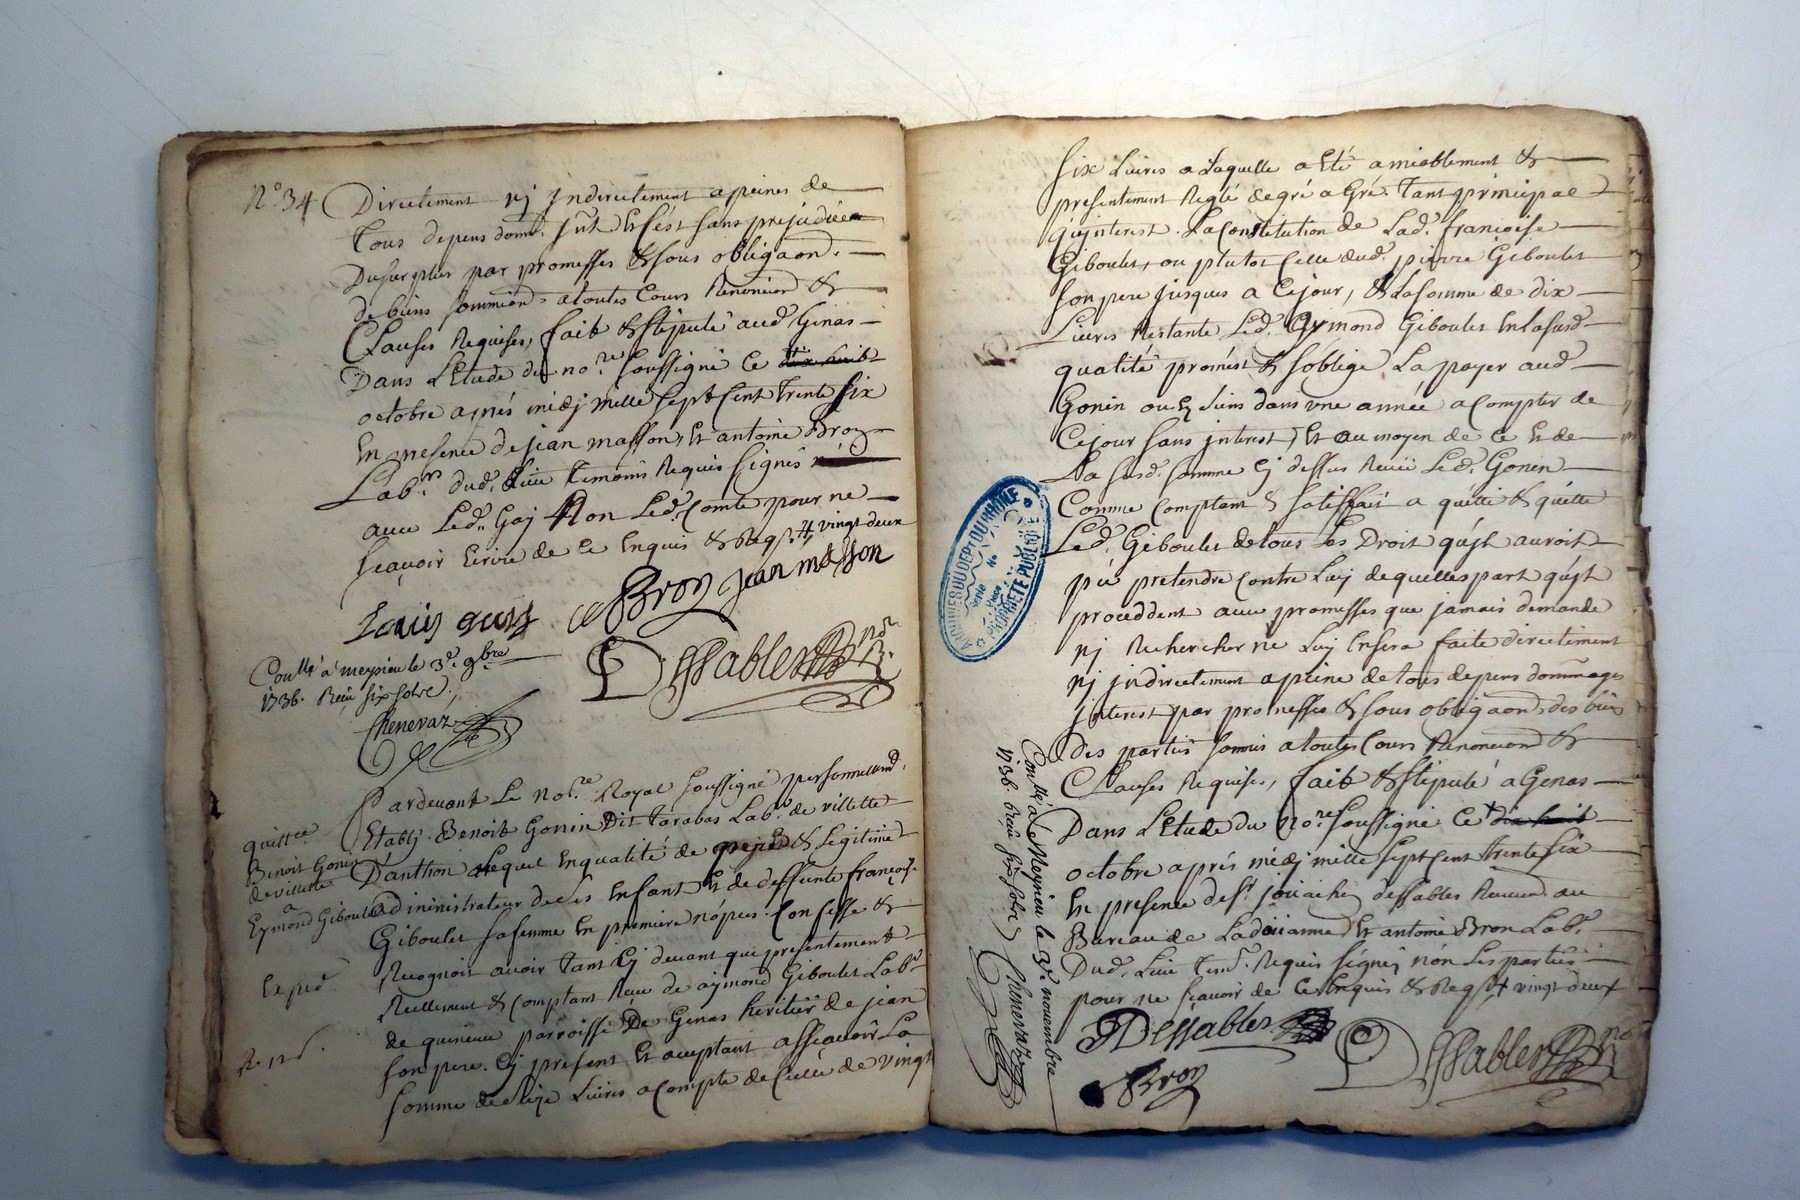 N.° 34
Directement nj Jndirectement a peines de
tous depens dom. Jnt. Et c'est sans prejudice
Du surplus par promesses & sous obligaon.
de biens sommiond. a toutes Cours Renoncion &
Clauses Requises, fait & stipulé aud. Genas
Dans L'Etude du no.re soussigné ce dix huit
octobre aprés midj mille sept cent trente six
En presence de jean masson, Et antoine Bron
Lab.rs dud. Lieu temoins Requis signés
avec Led. Gaj Non Led. Comte pour ne
sçavoir Ecrire de ce Enquis & Reqs. 4 vingt deux
Louis gaij Bron jean masson
Dessables no.re
Coullé à meysieu le 3.e 9bre
1736. Reçu six sols.
Chenevaz
quittce
Benoit Gonin
de villette
a
Eymond Giboulet
Expéd.
Pardevant Le No.re Royal soussigné personnellemt.
Etablj Benoit Gonin Dit Tarabas Lab.r de villette
D'anthon Lequel En qualité de pere & Legitime
administrateur de ses Enfant Et de deffunte françoise
Giboulet sa femme En premiere nópces. Confesse &
Recognoit avoir tant Cj devant que presentement
Reellement & Comptant Receu de aymond Giboulet Lab.r
de parroisse De Genas heritier de jean
son pere. Cj present Et aceptant assçavoir La
somme de seize Livres a Compte de Celle de vingt
six Livres a Laquelle a Eté amiablement &
presentement Reglé de gré a Gré. tant principal
qu'jnterest. La Constitution de Lad. françoise
Giboulet, ou plutot Celle dud. pierre Giboulet
son pere jusques a Cejour, & La somme de dix
Livres Restante Led. Eymond Giboulet En La susd.
qualité promést & s'oblige La payer aud.
Gonin ou Es siens dans une année a Compter de
Cejour sans jnterest, Et au moyen de ce Et de
La susd. somme Cj dessus Receü Led. Gonin
Comme Comptant & satisfait a quitté & quitte
Led. Giboulet de tous Les Droit qu'jl auroit
pü pretendre Contre Luij de quelles part qu'jl
proceddent avec promesses que jamais demande
nj Rechercher ne Luij En sera faite directement
nj jndirectement a peine de tous depens dommages
jnterest par promesses & sous obligaons des biens
des parties soumis a toutes Cours Renoncions &
Clauses Requises, fait & stipulé a Genas
Dans L'Etude du no.re soussigné Ce dix huit
octobre aprés midj mille sept Cent trente six
En presence de s.r joüachin dessables Receveur au
Bureau de La doüanne Et antoine Bron Lab.r
Dud. Lieu tem.s Requis signés nón Les parties
pour ne sçavoir de ce Enquis & Reqs. 4 vingt deux
JDessables Dessables no.re
Bron
Coullé a Meysieu le 3.e novembre
1736. Reçu six sols
Chenevaz
ARCHIVES DU DEPT DU RHÔNE
PROPRIÉTÉ PUBLIQUE